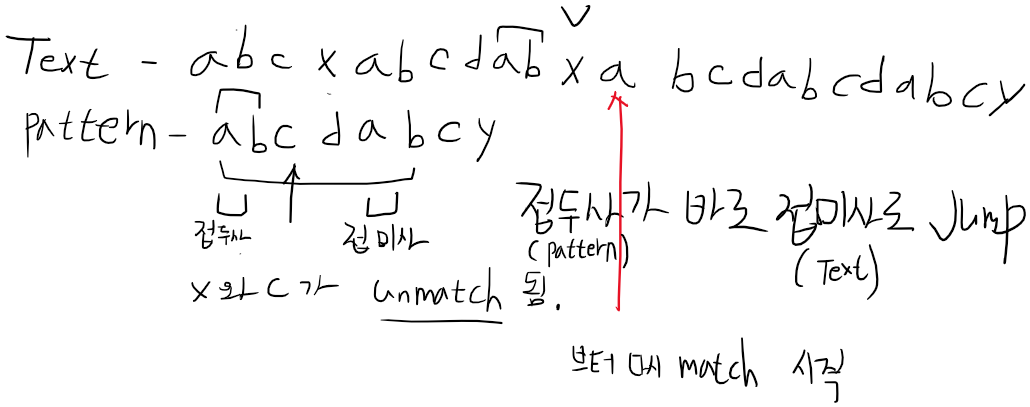 Text - abc x abcdab x a bcdabcdabcy
pattern - abc dabcy
접두사 접미사
접두사가 바로 접미사로 Jump
(pattern) (Text)
x와 c가 unmatch 됨.
부터 다시 match 시작